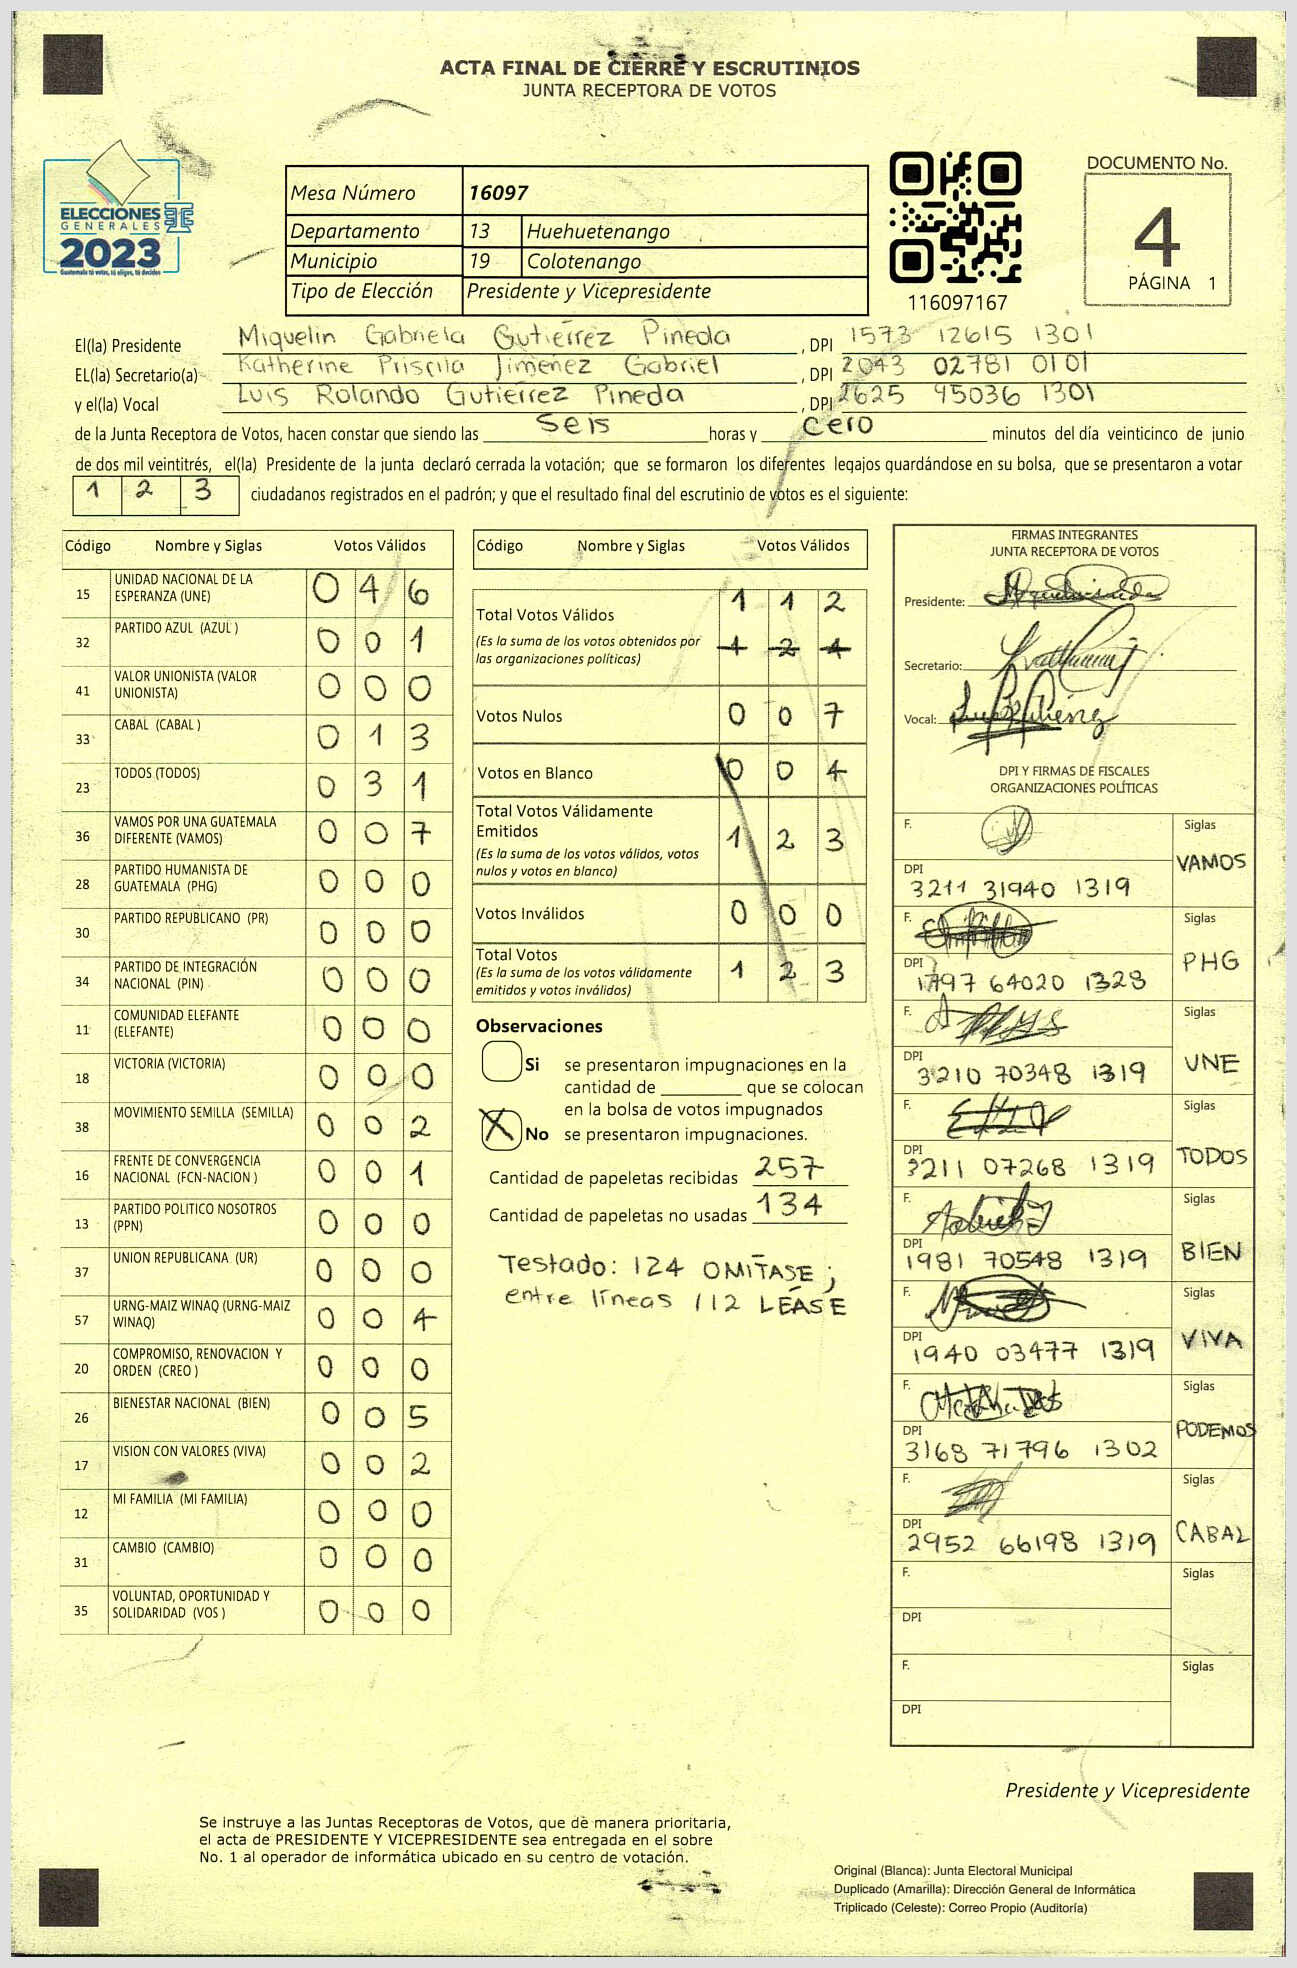 ACTA FINAL DE CIERRE Y ESCRUTINIOS
JUNTA RECEPTORA DE VOTOS
ELECCIONES
GENERALES
2023
Guatemala tú votas, tú eliges, tú decides
Mesa Número 16097
Departamento 13 Huehuetenango
Municipio 19 Colotenango
Tipo de Elección Presidente y Vicepresidente
116097167
DOCUMENTO No.
4
PÁGINA 1
El(la) Presidente Miquelin Gabriela Gutiérrez Pineda , DPI 1573 12615 1301
EL(la) Secretario(a) Katherine Priscila Jiménez Gabriel , DPI 2043 02781 0101
y el(la) Vocal Luis Rolando Gutiérrez Pineda , DPI 2625 45036 1301
de la Junta Receptora de Votos, hacen constar que siendo las Seis horas y Cero minutos del día veinticinco de junio
de dos mil veintitrés, el(la) Presidente de la junta declaró cerrada la votación; que se formaron los diferentes legajos guardándose en su bolsa, que se presentaron a votar
1 2 3 ciudadanos registrados en el padrón; y que el resultado final del escrutinio de votos es el siguiente:
Código Nombre y Siglas Votos Válidos
15 UNIDAD NACIONAL DE LA ESPERANZA (UNE) 0 4 6
32 PARTIDO AZUL (AZUL ) 0 0 1
41 VALOR UNIONISTA (VALOR UNIONISTA) 0 0 0
33 CABAL (CABAL ) 0 1 3
23 TODOS (TODOS) 0 3 1
36 VAMOS POR UNA GUATEMALA DIFERENTE (VAMOS) 0 0 7
28 PARTIDO HUMANISTA DE GUATEMALA (PHG) 0 0 0
30 PARTIDO REPUBLICANO (PR) 0 0 0
34 PARTIDO DE INTEGRACIÓN NACIONAL (PIN) 0 0 0
11 COMUNIDAD ELEFANTE (ELEFANTE) 0 0 0
18 VICTORIA (VICTORIA) 0 0 0
38 MOVIMIENTO SEMILLA (SEMILLA) 0 0 2
16 FRENTE DE CONVERGENCIA NACIONAL (FCN-NACION ) 0 0 1
13 PARTIDO POLITICO NOSOTROS (PPN) 0 0 0
37 UNION REPUBLICANA (UR) 0 0 0
57 URNG-MAIZ WINAQ (URNG-MAIZ WINAQ) 0 0 4
20 COMPROMISO, RENOVACION Y ORDEN (CREO ) 0 0 0
26 BIENESTAR NACIONAL (BIEN) 0 0 5
17 VISION CON VALORES (VIVA) 0 0 2
12 MI FAMILIA (MI FAMILIA) 0 0 0
31 CAMBIO (CAMBIO) 0 0 0
35 VOLUNTAD, OPORTUNIDAD Y SOLIDARIDAD (VOS ) 0 0 0
Código Nombre y Siglas Votos Válidos
Total Votos Válidos 1 1 2
(Es la suma de los votos obtenidos por las organizaciones políticas) 1 2 4
Votos Nulos 0 0 7
Votos en Blanco 0 0 4
Total Votos Válidamente Emitidos
(Es la suma de los votos válidos, votos nulos y votos en blanco) 1 2 3
Votos Inválidos 0 0 0
Total Votos
(Es la suma de los votos válidamente emitidos y votos inválidos) 1 2 3
Observaciones
Si se presentaron impugnaciones en la
cantidad de ________ que se colocan
en la bolsa de votos impugnados
X No se presentaron impugnaciones.
Cantidad de papeletas recibidas 257
Cantidad de papeletas no usadas 134
Testado: 124 OMÍTASE;
entre líneas 112 LÉASE
FIRMAS INTEGRANTES
JUNTA RECEPTORA DE VOTOS
Presidente:
Secretario:
Vocal:
DPI Y FIRMAS DE FISCALES
ORGANIZACIONES POLÍTICAS
F. Siglas
DPI 3211 31940 1319 VAMOS
F. Siglas
DPI 1797 64020 1328 PHG
F. Siglas
DPI 3210 70348 1319 UNE
F. Siglas
DPI 3211 07268 1319 TODOS
F. Siglas
DPI 1981 70548 1319 BIEN
F. Siglas
DPI 1940 03477 1319 VIVA
F. Siglas
DPI 3168 71796 1302 PODEMOS
F. Siglas
DPI 2952 66198 1319 CABAL
F. Siglas
DPI
F. Siglas
DPI
Presidente y Vicepresidente
Se instruye a las Juntas Receptoras de Votos, que de manera prioritaria,
el acta de PRESIDENTE Y VICEPRESIDENTE sea entregada en el sobre
No. 1 al operador de informática ubicado en su centro de votación.
Original (Blanca): Junta Electoral Municipal
Duplicado (Amarilla): Dirección General de Informática
Triplicado (Celeste): Correo Propio (Auditoría)